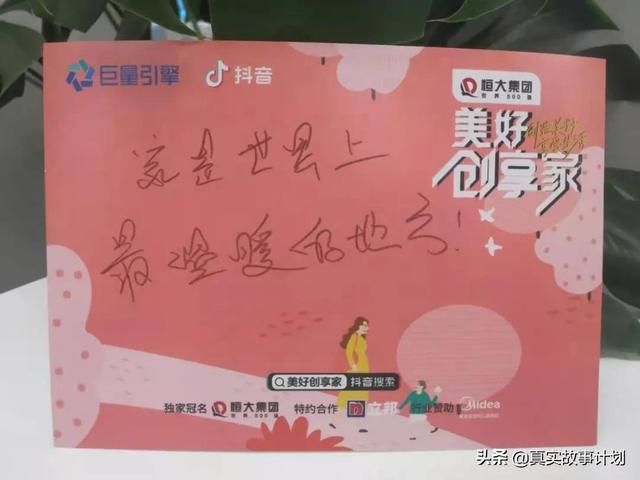 巨量引擎 抖音
恒大集团
世界500强
美好
创享家
这是世界上
最温暖的地方!
美好创享家 抖音搜索
独家冠名 恒大集团 特约合作 立邦 行业赞助 Midea
世界500强
头条 @真实故事计划